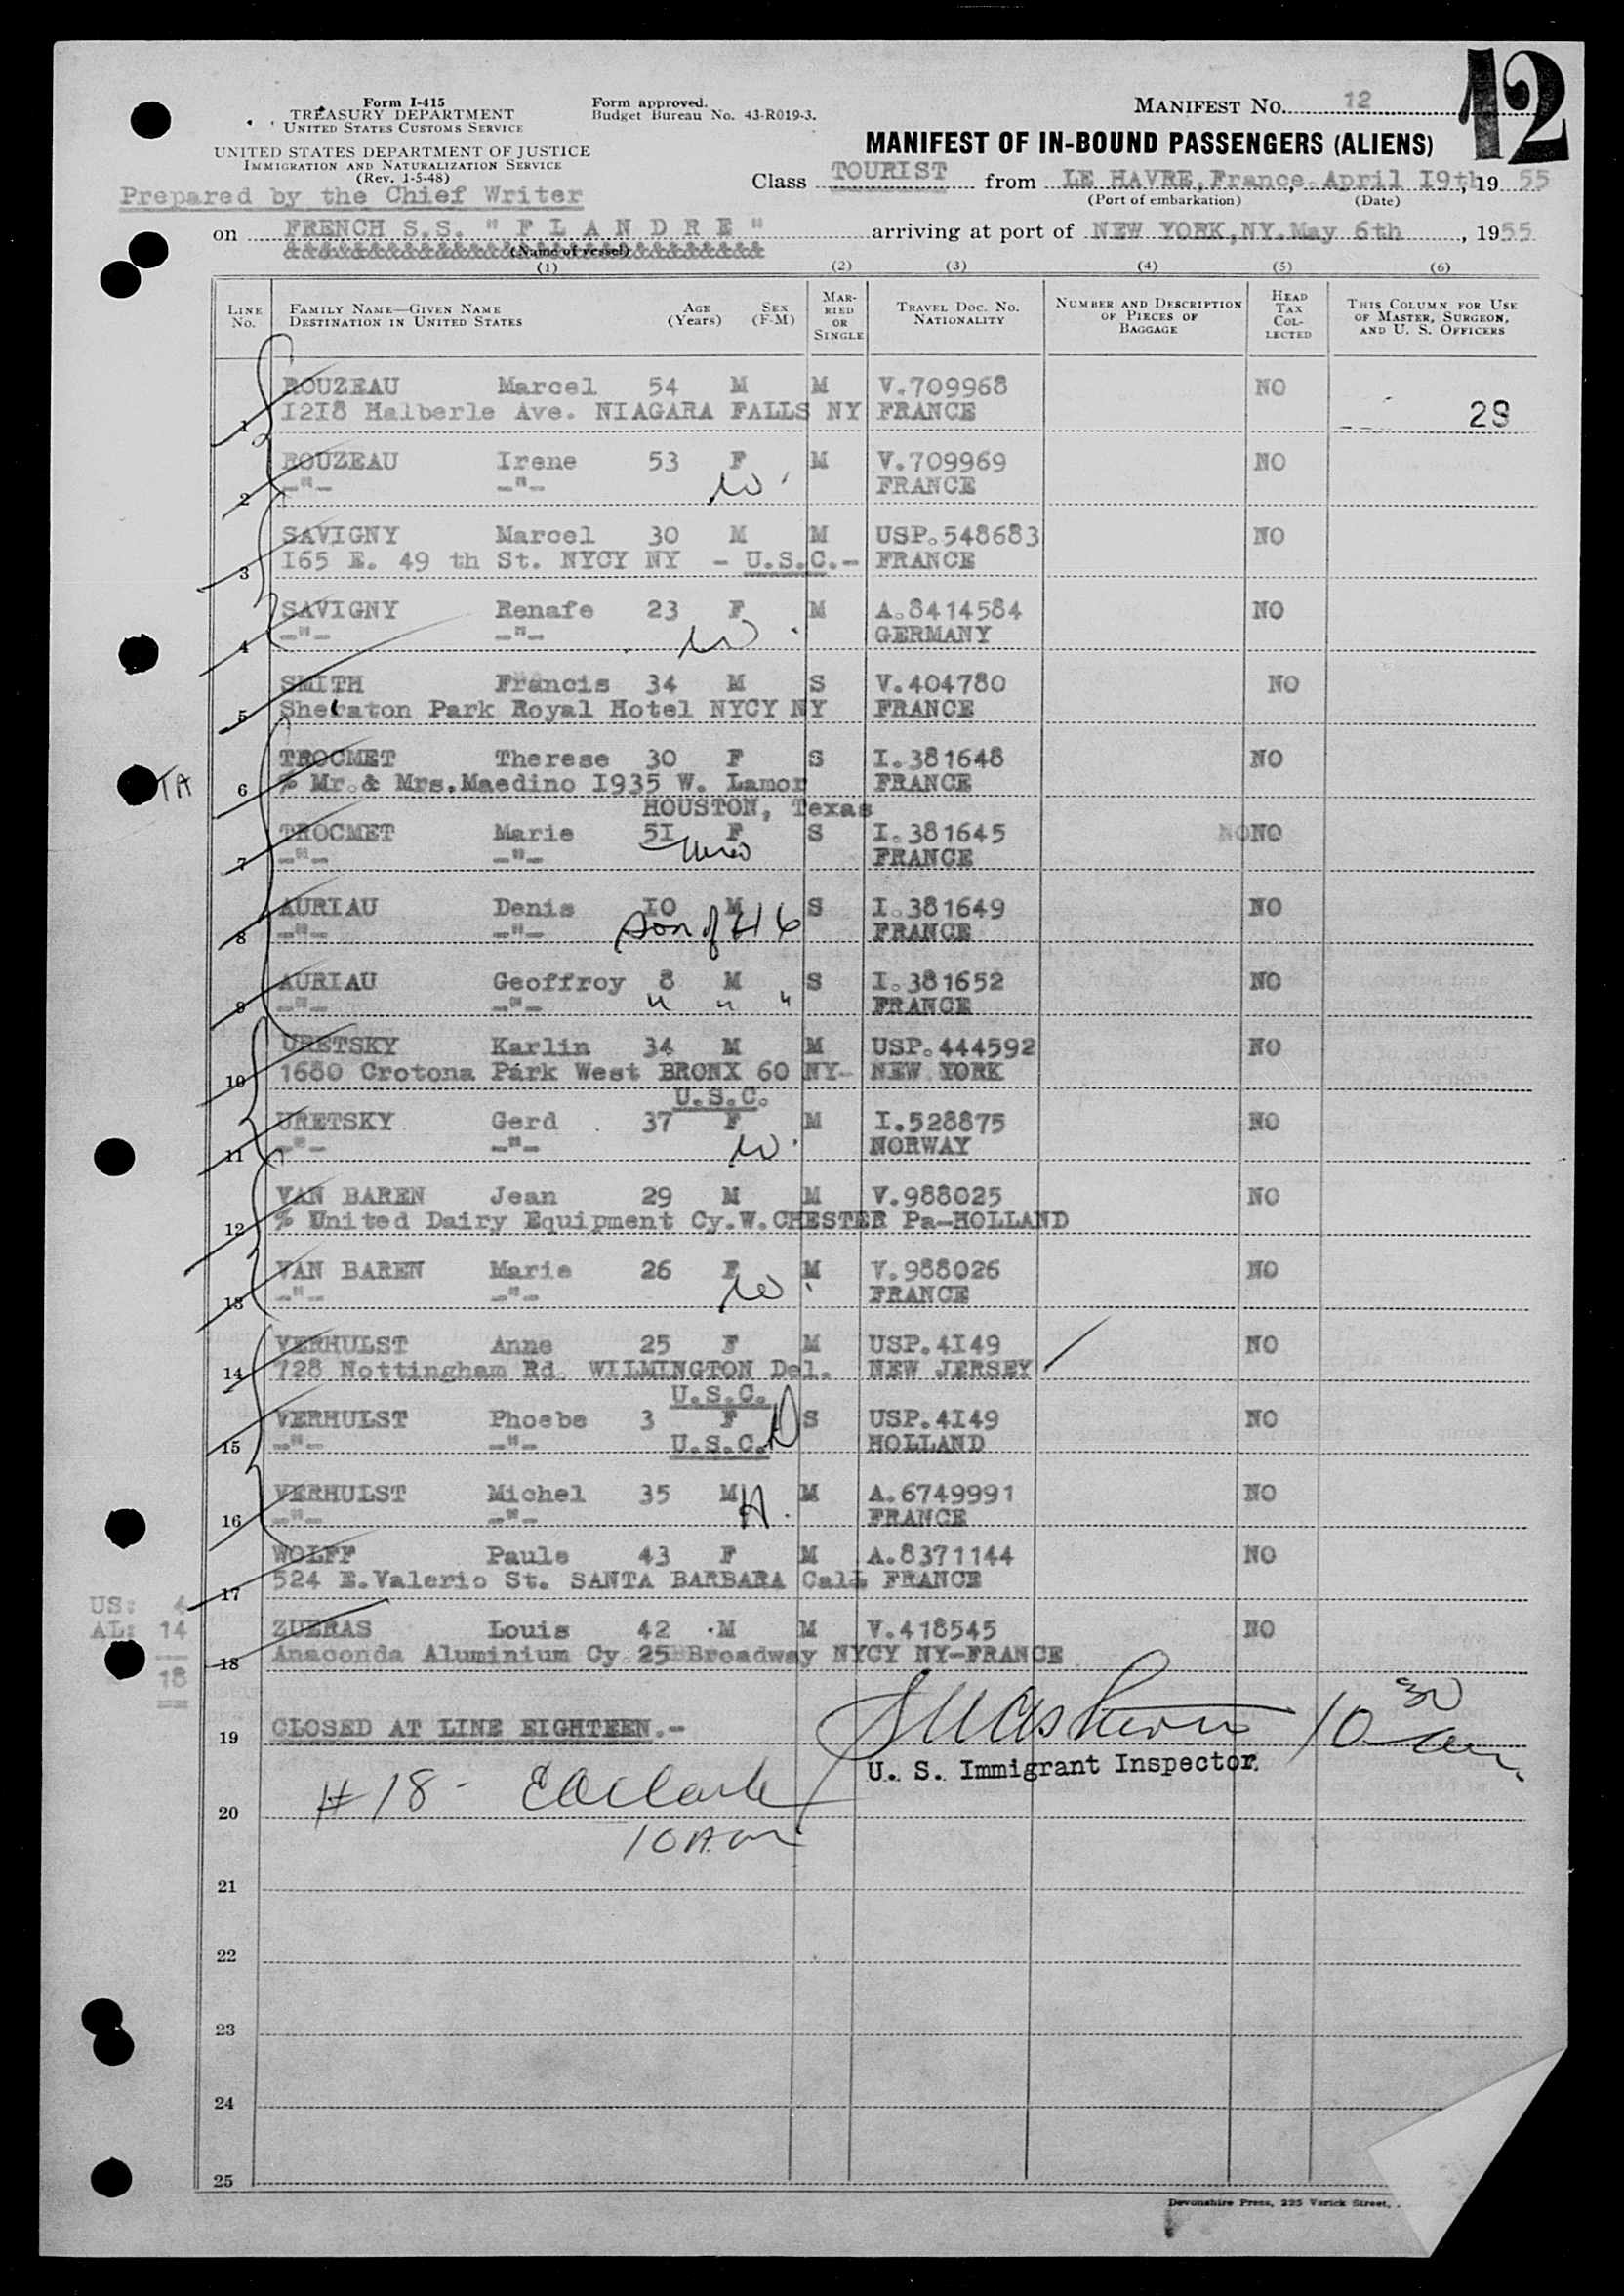 Form I-415
TREASURY DEPARTMENT
UNITED STATES CUSTOMS SERVICE
UNITED STATES DEPARTMENT OF JUSTICE
IMMIGRATION AND NATURALIZATION SERVICE
(Rev. 1-5-48)
Form approved.
Budget Bureau No. 43-R019-3.
MANIFEST NO. 12
12
MANIFEST OF IN-BOUND PASSENGERS (ALIENS)
Prepared by the Chief Writer
Class TOURIST from LE HAVRE,France.April I9th, 19 55
(Port of embarkation) (Date)
on FRENCH S.S. " F L A N D R E " arriving at port of NEW YORK,NY.May 6th , 1955
(Name of vessel)
(1) (2) (3) (4) (5) (6)
LINE No. FAMILY NAME—GIVEN NAME DESTINATION IN UNITED STATES AGE (Years) SEX (F-M) MARRIED OR SINGLE TRAVEL DOC. NO. NATIONALITY NUMBER AND DESCRIPTION OF PIECES OF BAGGAGE HEAD TAX COLLECTED THIS COLUMN FOR USE OF MASTER, SURGEON, AND U. S. OFFICERS
ROUZEAU Marcel 54 M M V.709968 NO
1 I2I8 Halberle Ave. NIAGARA FALLS NY FRANCE 29
ROUZEAU Irene 53 F M V.709969 NO
2 -"- -"- W FRANCE
SAVIGNY Marcel 30 M M USP.548683 NO
3 I65 E. 49 th St. NYCY NY - U.S.C.- FRANCE
SAVIGNY Renafe 23 F M A.8414584 NO
4 -"- -"- W GERMANY
SMITH Francis 34 M S V.404780 NO
5 Sheraton Park Royal Hotel NYCY NY FRANCE
TROCMET Therese 30 F S I.381648 NO
TA 6 % Mr.& Mrs.Maedino I935 W. Lamor FRANCE
HOUSTON, Texas
TROCMET Marie 5I F S I.381645 NONO
7 -"- -"- FRANCE
AURIAU Denis I0 M S I.381649 NO
8 -"- -"- son of #6 FRANCE
AURIAU Geoffroy 8 M S I.381652 NO
9 -"- -"- " " " FRANCE
URETSKY Karlin 34 M M USP.444592 NO
10 1680 Crotona Park West BRONX 60 NY- NEW YORK
U.S.C.
URETSKY Gerd 37 F M I.528875 NO
11 -"- -"- W NORWAY
VAN BAREN Jean 29 M M V.988025 NO
12 % United Dairy Equipment Cy.W.CHESTER Pa-HOLLAND
VAN BAREN Marie 26 F M V.988026 NO
13 -"- -"- W FRANCE
VERHULST Anne 25 F M USP.4I49 NO
14 728 Nottingham Rd. WILMINGTON Del. NEW JERSEY
U.S.C.
VERHULST Phoebe 3 F D S USP.4I49 NO
15 -"- -"- U.S.C. HOLLAND
VERHULST Michel 35 M M A.6749991 NO
16 -"- -"- H. FRANCE
WOLFF Paule 43 F M A.8371144 NO
17 524 E.Valerio St. SANTA BARBARA Cal. FRANCE
US: 4
AL: 14
18
ZUERAS Louis 42 M M V.418545 NO
18 Anaconda Aluminium Cy 25 Broadway NYCY NY-FRANCE
19 CLOSED AT LINE EIGHTEEN.-
10 30 am
U. S. Immigrant Inspector
# 18 -
20
10 Am
21
22
23
24
25
Devonshire Press, 225 Varick Street,